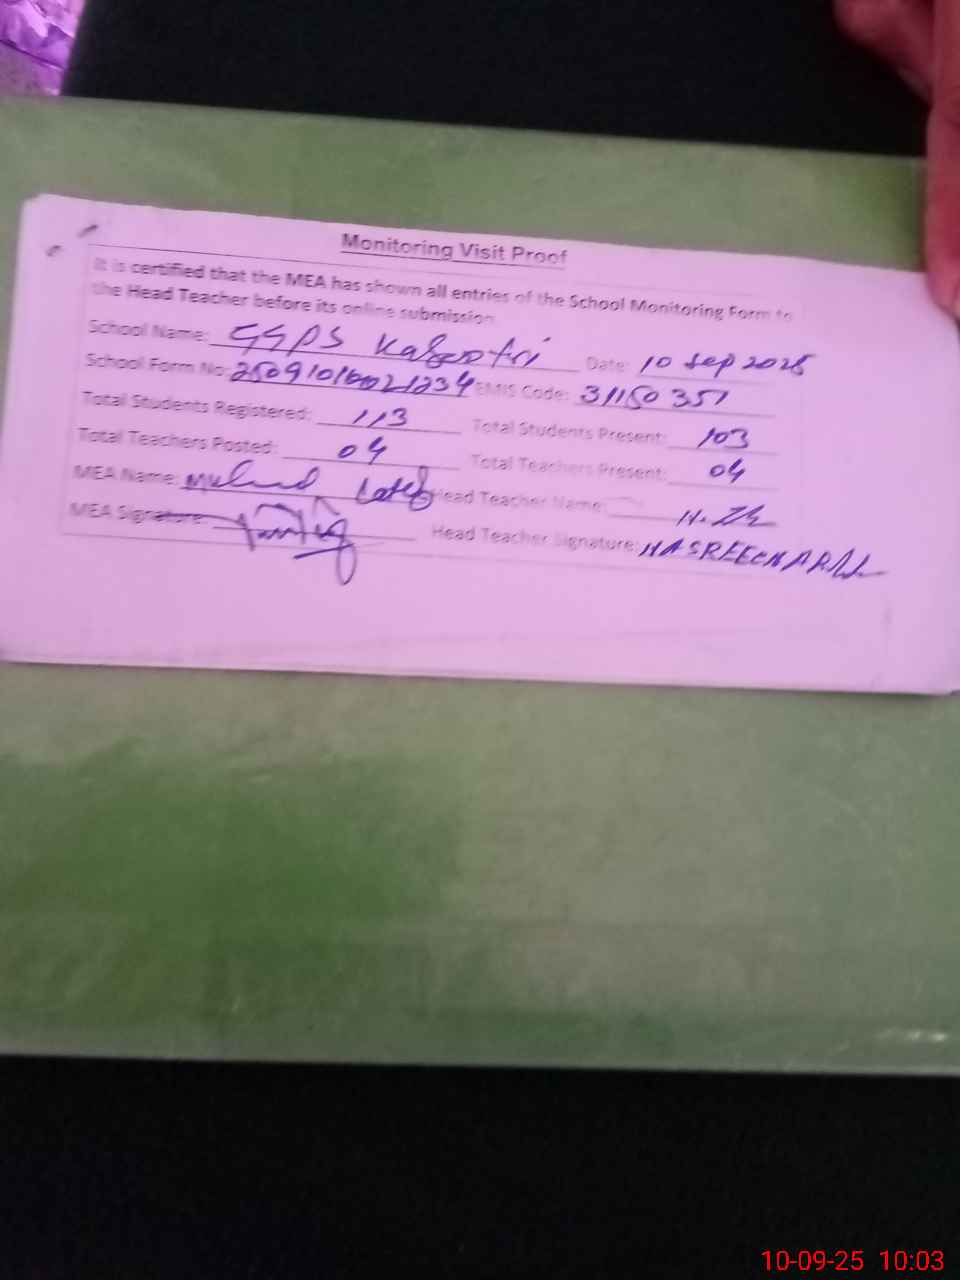 Monitoring Visit Proof
It is certified that the MEA has shown all entries of the School Monitoring Form to
the Head Teacher before its online submission
School Name: GGPS Date: 10 Sep 2025
School Form No: EMIS Code: 31150351
Total Students Registered: 113 Total Students Present: 103
Total Teachers Posted: 04 Total Teachers Present: 04
MEA Name: Head Teacher Name:
MEA Signature: Head Teacher Signature:
10-09-25 10:03